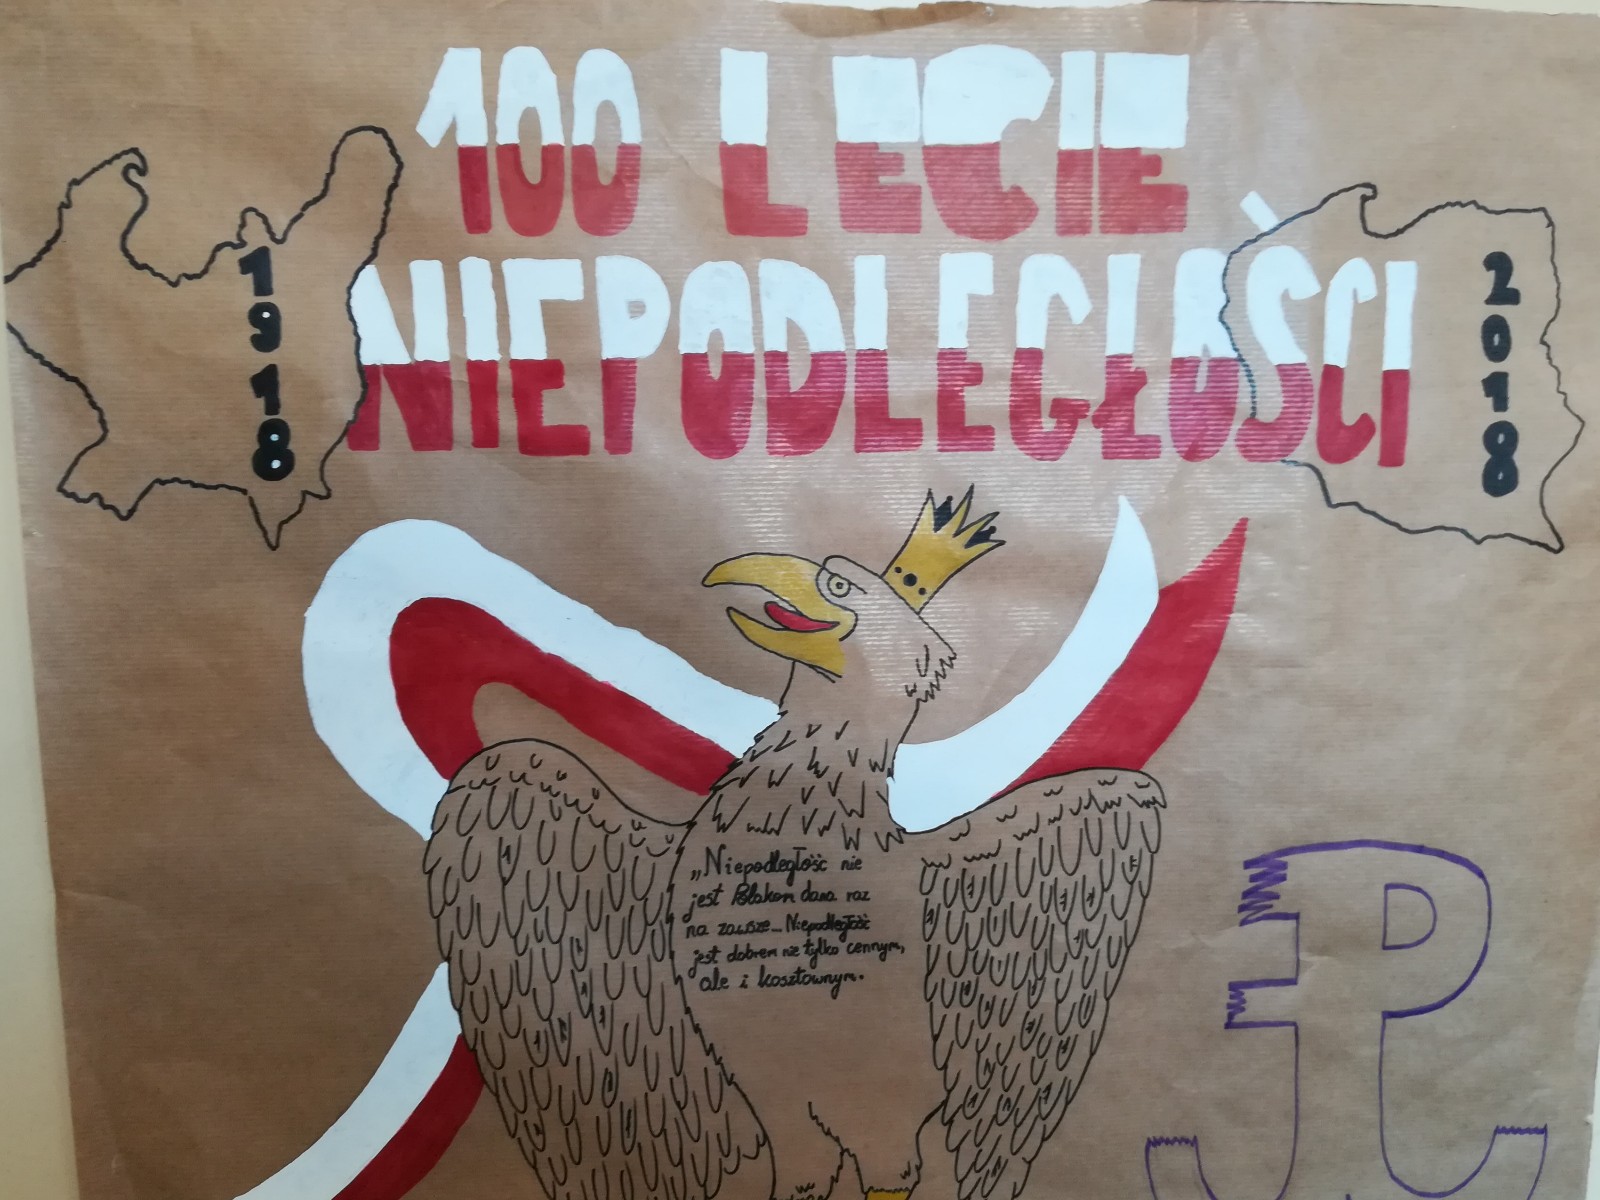 100 LECIE
NIEPODLEGŁOŚCI
1918
2018
„Niepodległość nie
jest Polakom dana raz
na zawsze... Niepodległość
jest dobrem nie tylko cennym,
ale i kosztownym.